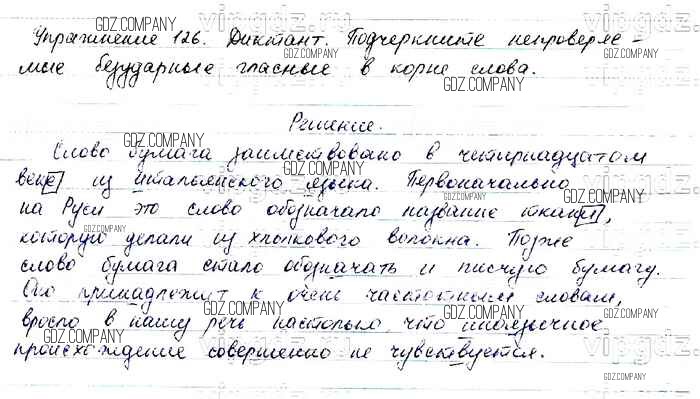 Упражнение 126. Диктант. Подчеркните непроверяе-
мые безударные гласные в корне слова.
Решение.
Слово бумага заимствовано в четырнадцатом
веке из итальянского языка. Первоначально
на Руси это слово обозначало название ткани,
которую делали из хлопкового волокна. Позже
слово бумага стало обозначать и писчую бумагу.
Оно принадлежит к очень частотным словам,
вросло в нашу речь настолько, что иноязычное
происхождение совершенно не чувствуется.